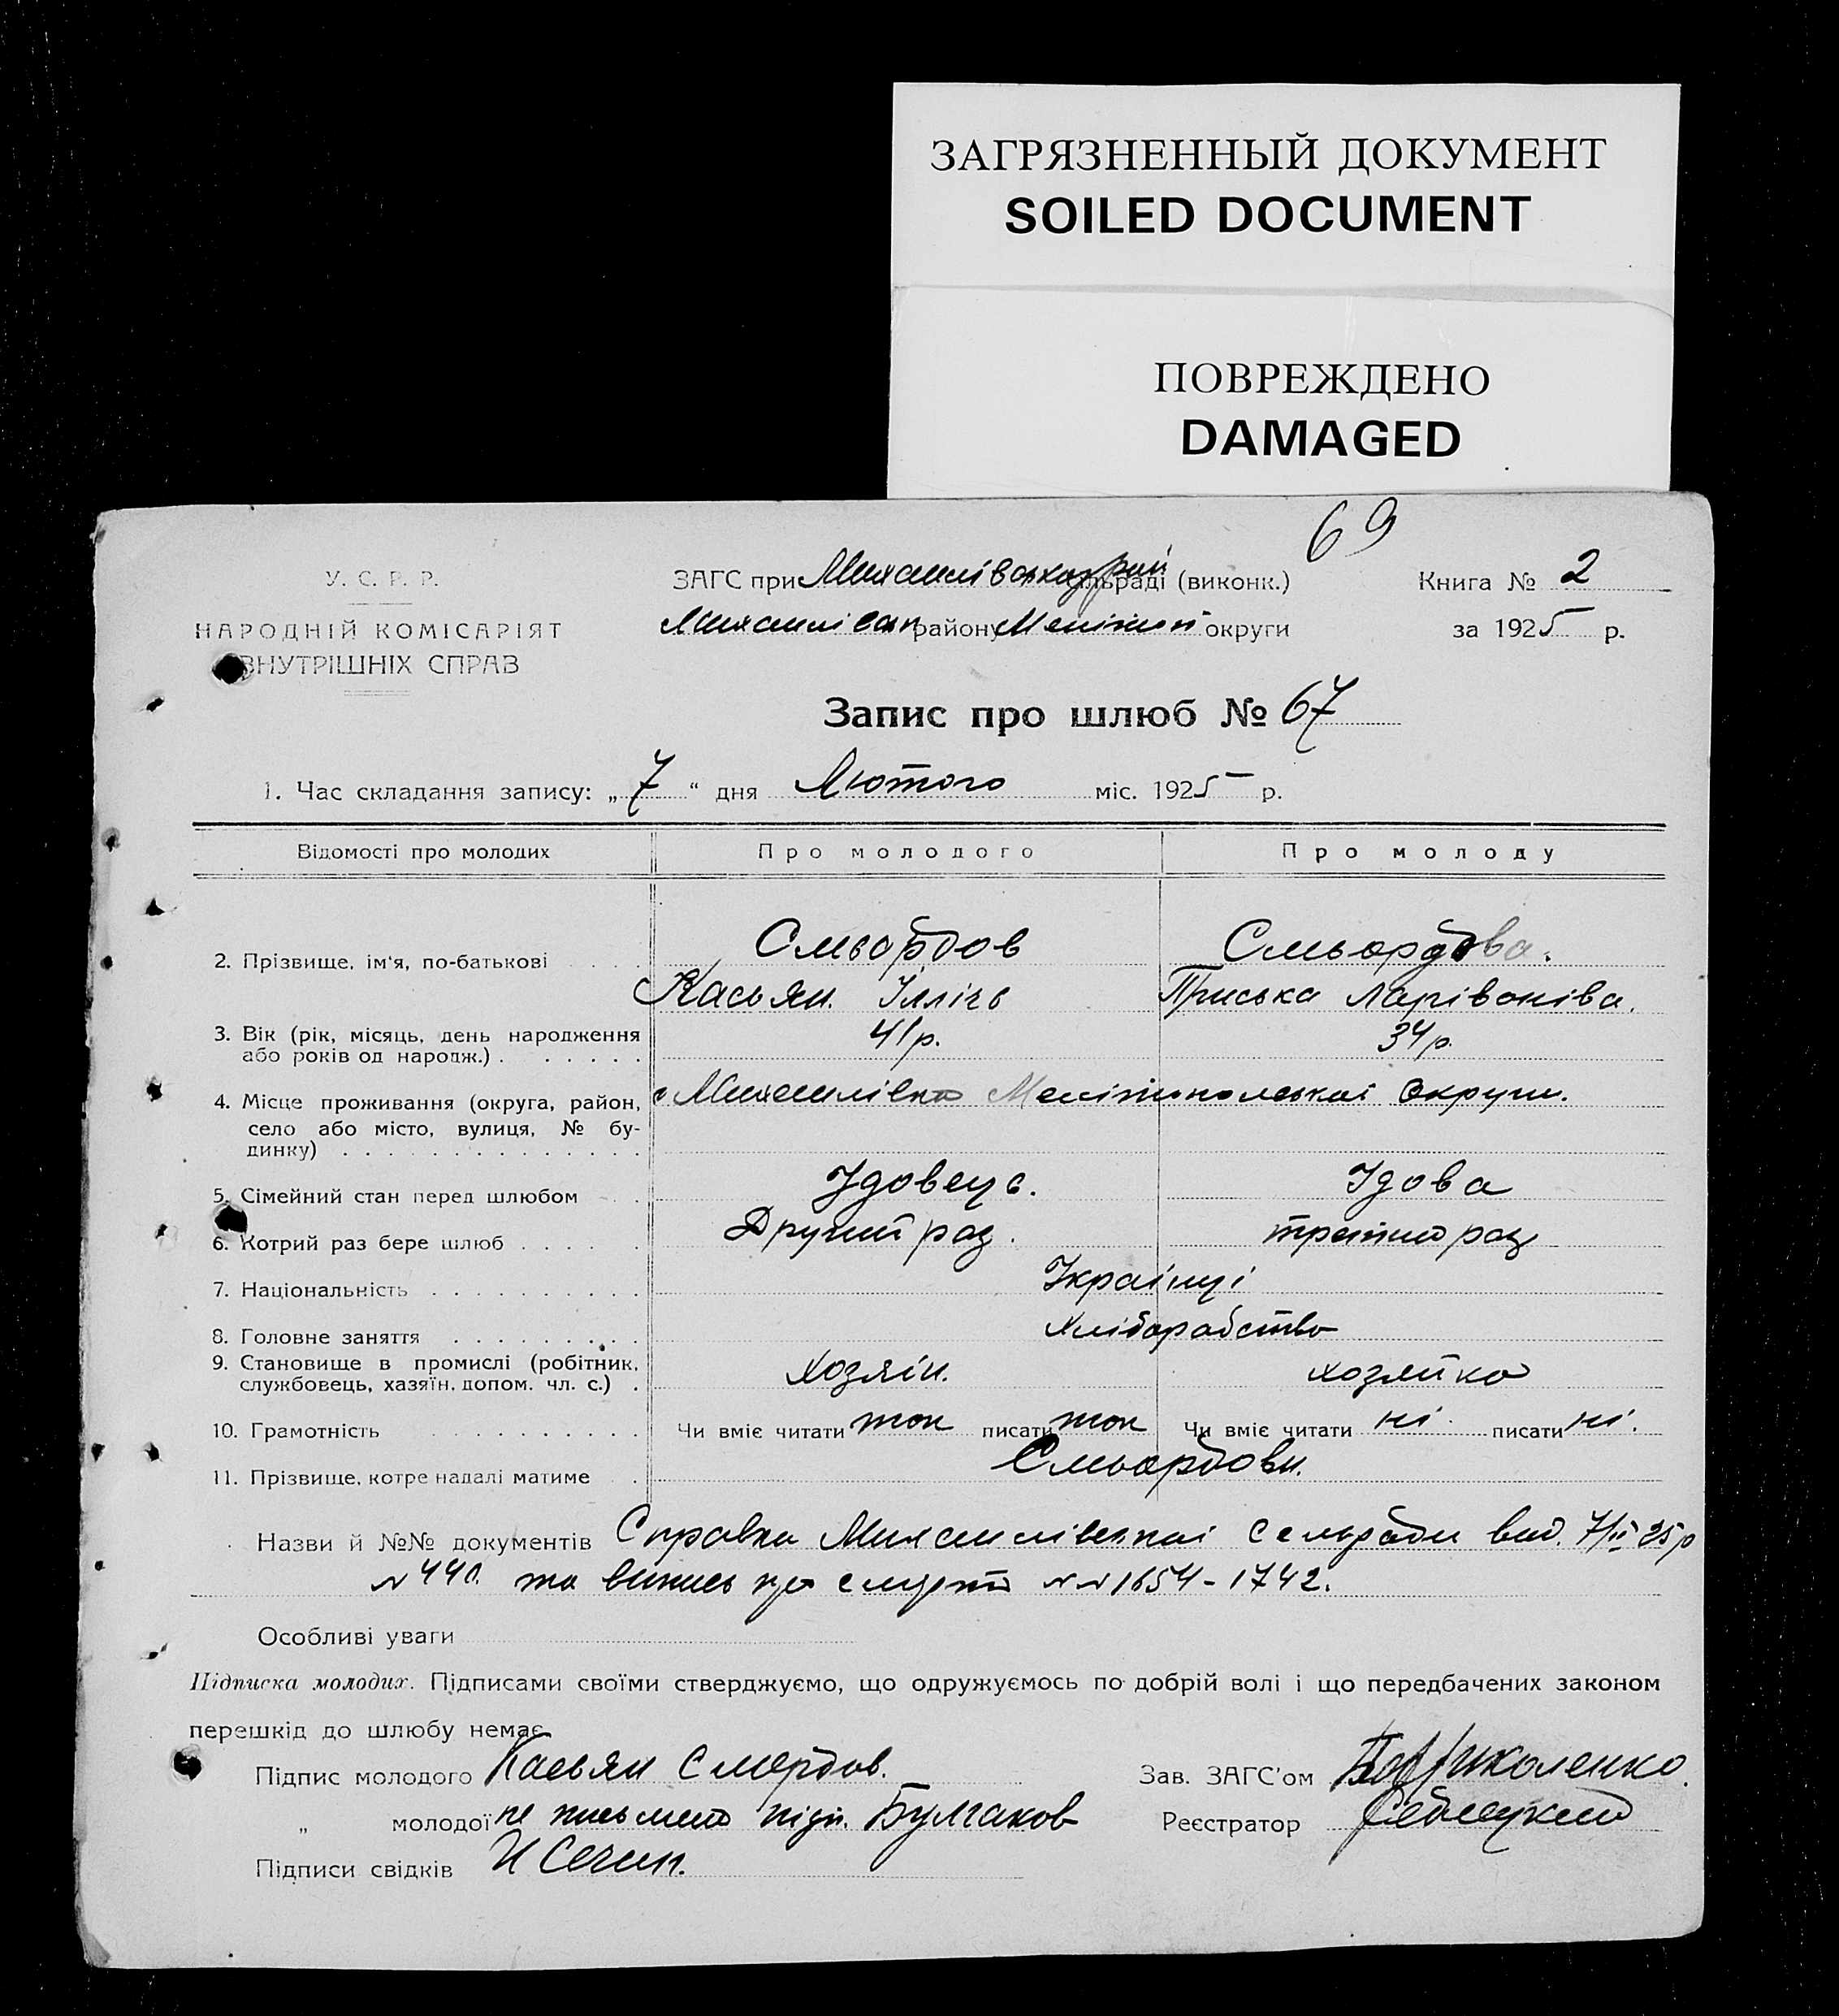 ЗАГРЯЗНЕННЫЙ ДОКУМЕНТ
SOILED DOCUMENT
ПОВРЕЖДЕНО
DAMAGED
69
У. С. Р. Р.
НАРОДНІЙ КОМІСАРІЯТ
ВНУТРІШНІХ СПРАВ
ЗАГС при сільраді (виконк.)
району Меліт. округи
Книга № 2
за 1925 р.
Запис про шлюб № 67
1. Час складання запису: „ 7 “ дня Лютого міс. 1925 р.
Відомості про молодих Про молодого Про молоду
2. Прізвище, ім'я, по-батькові . . . Смьордов Смьордова.
Касьян. Ілліч Приська Ларівонівна.
3. Вік (рік, місяць, день народження 41 р. 34 р.
або років од народж.) . . . . . .
4. Місце проживання (округа, район, с Михайлівка Мелітопольської Округи.
село або місто, вулиця, № бу-
динку) . . . . . . . . . . . . . .
5. Сімейний стан перед шлюбом . . Удовець. Удова
6. Котрий раз бере шлюб . . . . . Другий раз. третій раз
7. Національність . . . . . . . . . . Українці
8. Головне заняття . . . . . . . . . Хліборобство
9. Становище в промислі (робітник, Хозяїн. хозяйка
службовець, хазяїн, допом. чл. с.) .
10. Грамотність . . . . . . . . . . Чи вміє читати так писати так Чи вміє читати ні. писати ні.
11. Прізвище, котре надалі матиме . Смьордови.
Назви й №№ документів Справка Михайлівської сельради від. 7/II 25 р
№ 440. та випись про смерть №№ 1654-1742.
Особливі уваги
Підписка молодих. Підписами своїми стверджуємо, що одружуємось по добрій волі і що передбачених законом
перешкід до шлюбу немає.
Підпис молодого Касьян Смердов. Зав. ЗАГС'ом
„ молодої не письмена підп. Булгаков Реєстратор
Підписи свідків